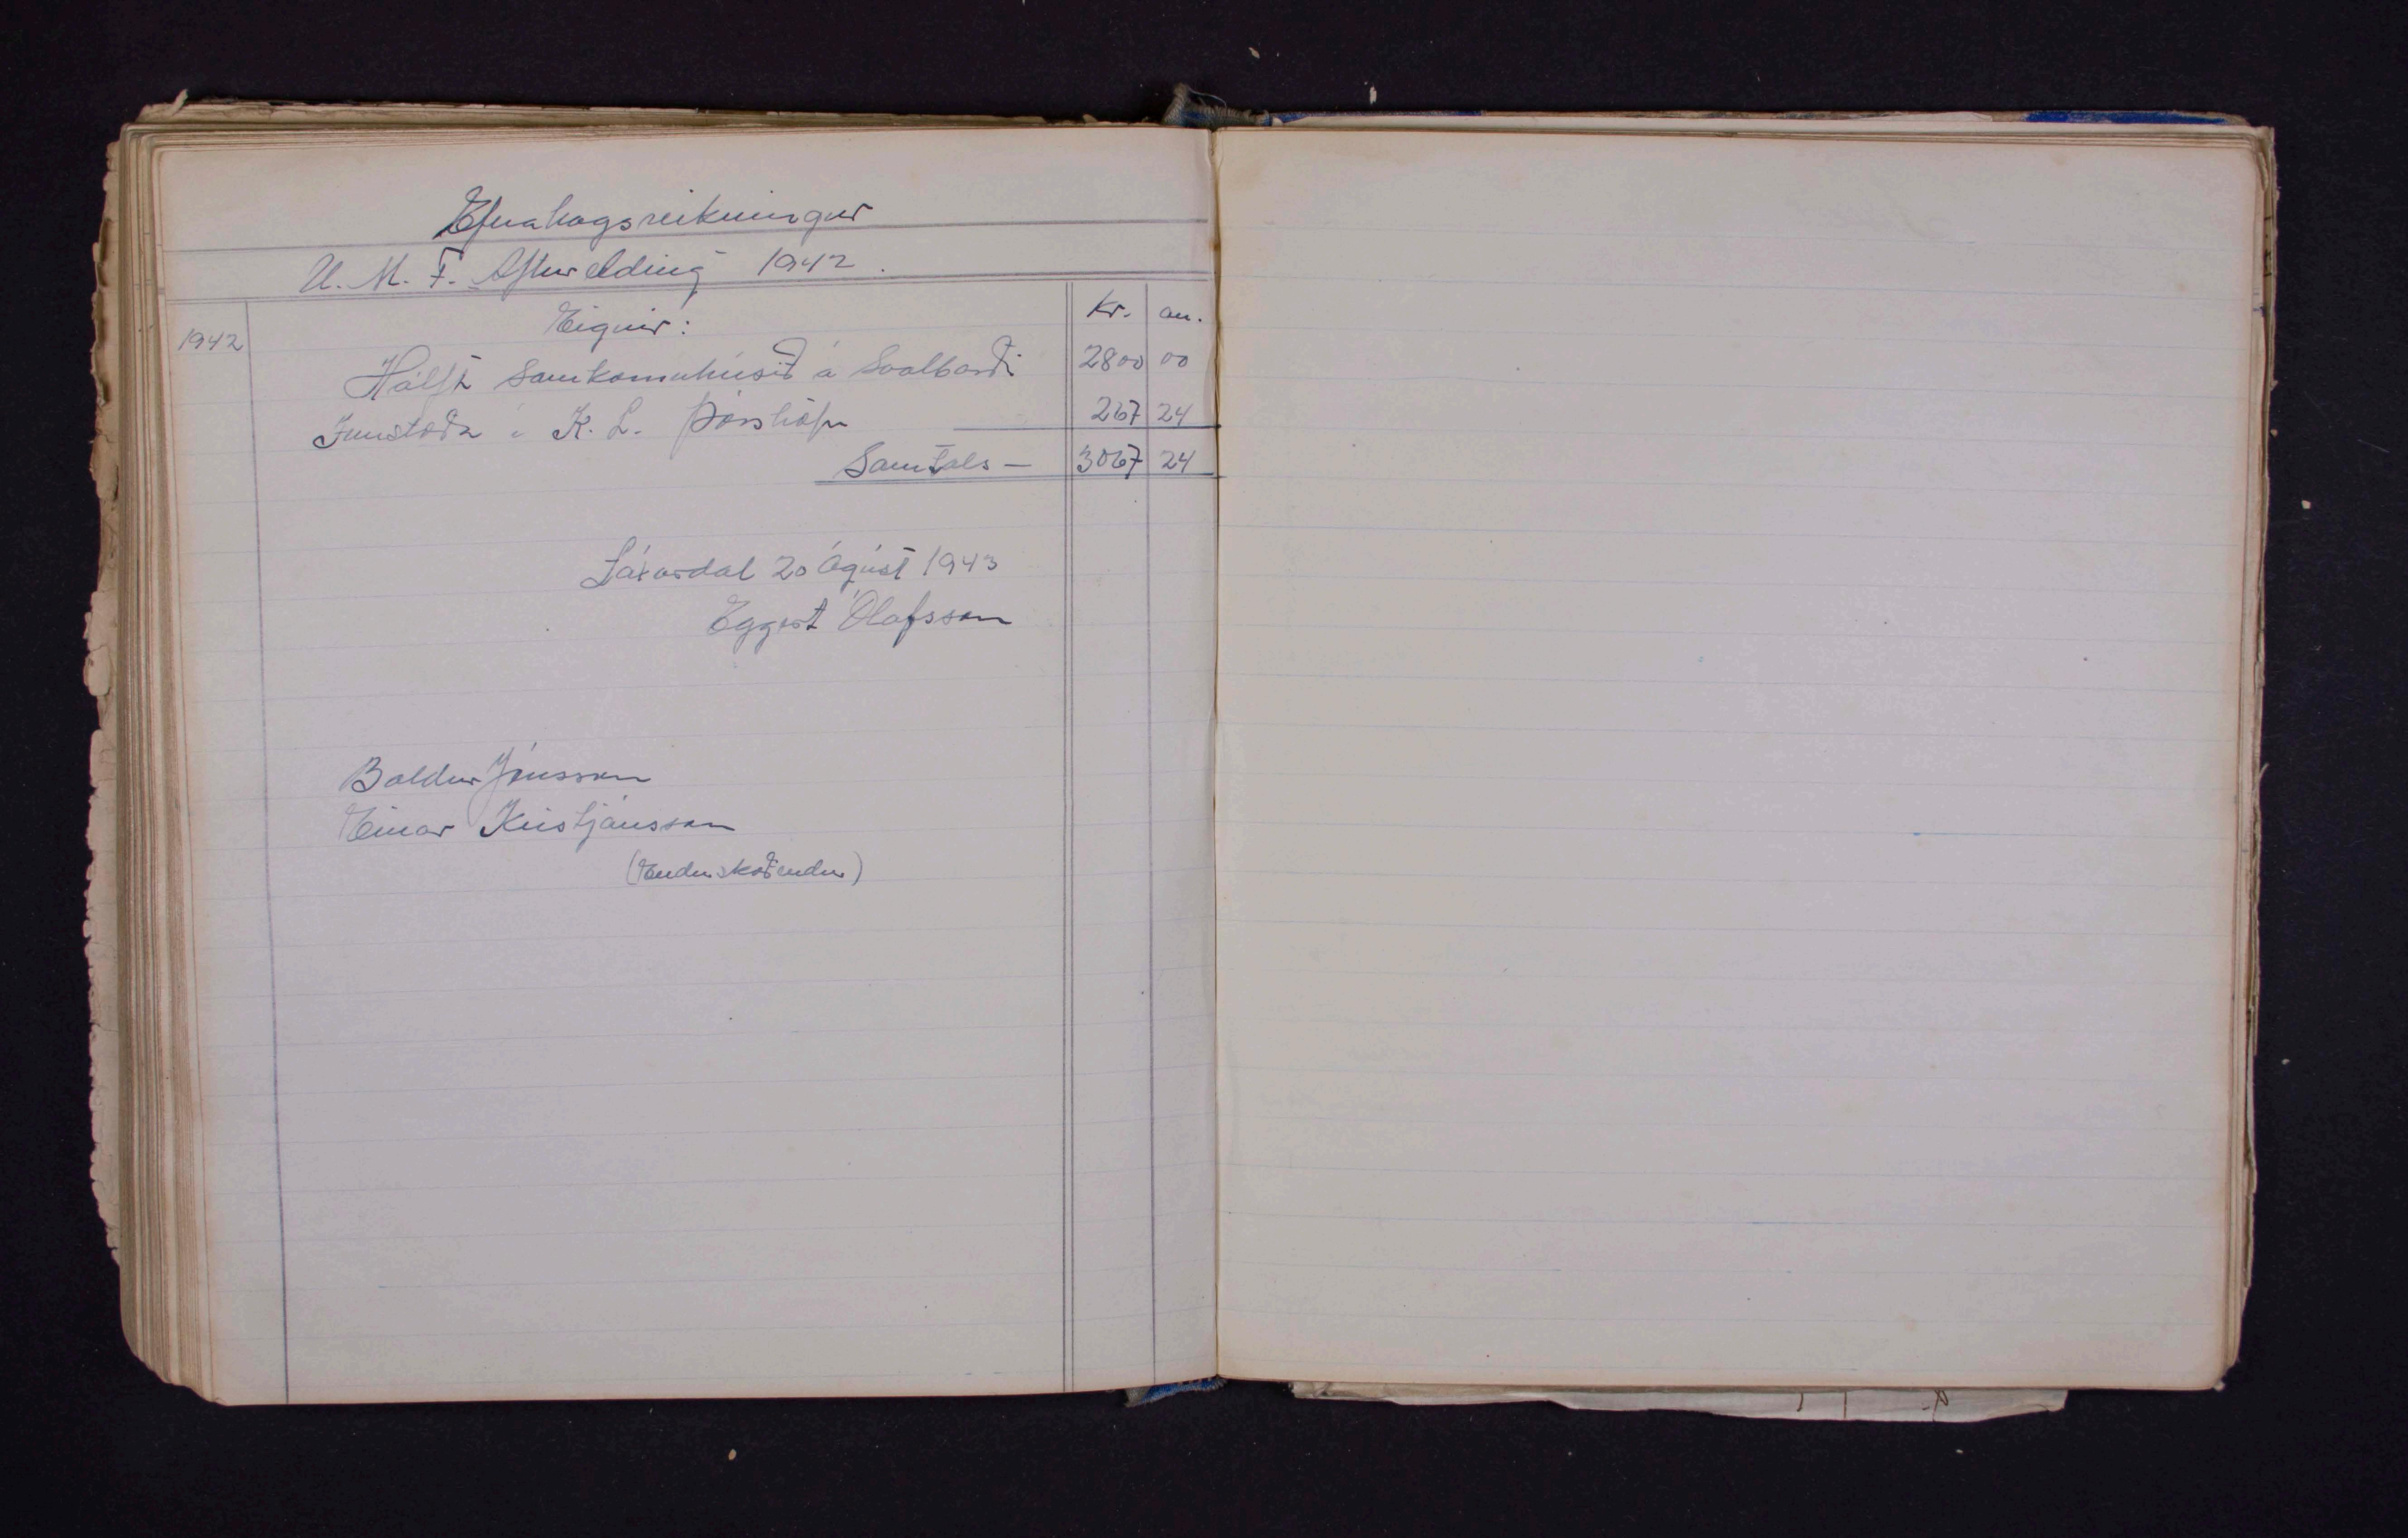 Efnahagsreikningur
U. M. F. Afturelding 1942.
Kr. au.
1942 Eignir:
Hálft samkomuhúsið á Svalbarði 2800 00
Innstæða í K. L. Þórshöfn 267 24
Samtals — 3067 24
Laxárdal 20 Ágúst 1943
Eggert Ólafsson
Baldur Jónsson
Einar Kristjánsson
(Endurskoðendur)